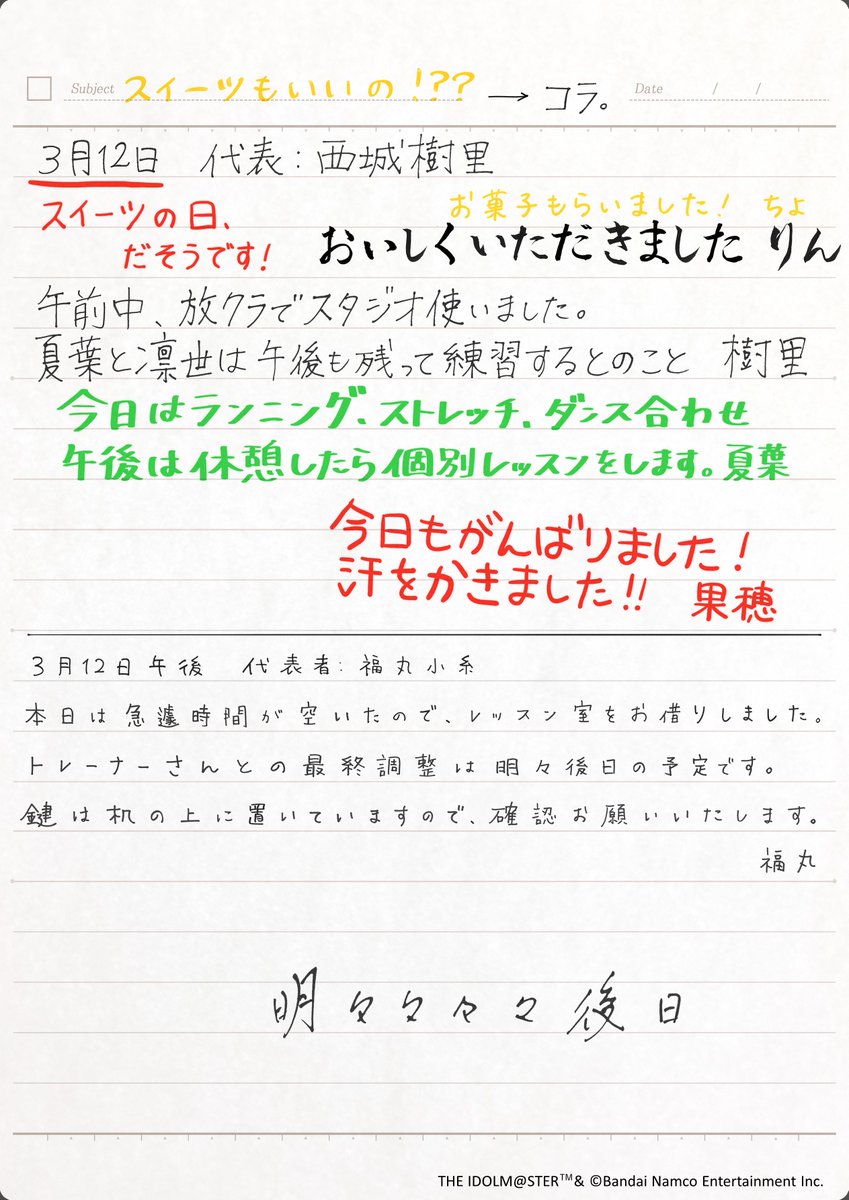 Subject スイーツもいいの!?? → コラ。 Date / /
3月12日 代表:西城樹里
スイーツの日、
だそうです!
お菓子もらいました! ちよ
おいしくいただきました りん
午前中、放クラでスタジオ使いました。
夏葉と凛世は午後も残って練習するとのこと 樹里
今日はランニング、ストレッチ、ダンス合わせ
午後は休憩したら個別レッスンをします。夏葉
今日もがんばりました!
汗をかきました!! 果穂
3月12日午後 代表者:福丸小糸
本日は急遽時間が空いたので、レッスン室をお借りしました。
トレーナーさんとの最終調整は明々後日の予定です。
鍵は机の上に置いていますので、確認お願いいたします。
福丸
明々々々々後日
THE IDOLM@STER™& ©Bandai Namco Entertainment Inc.